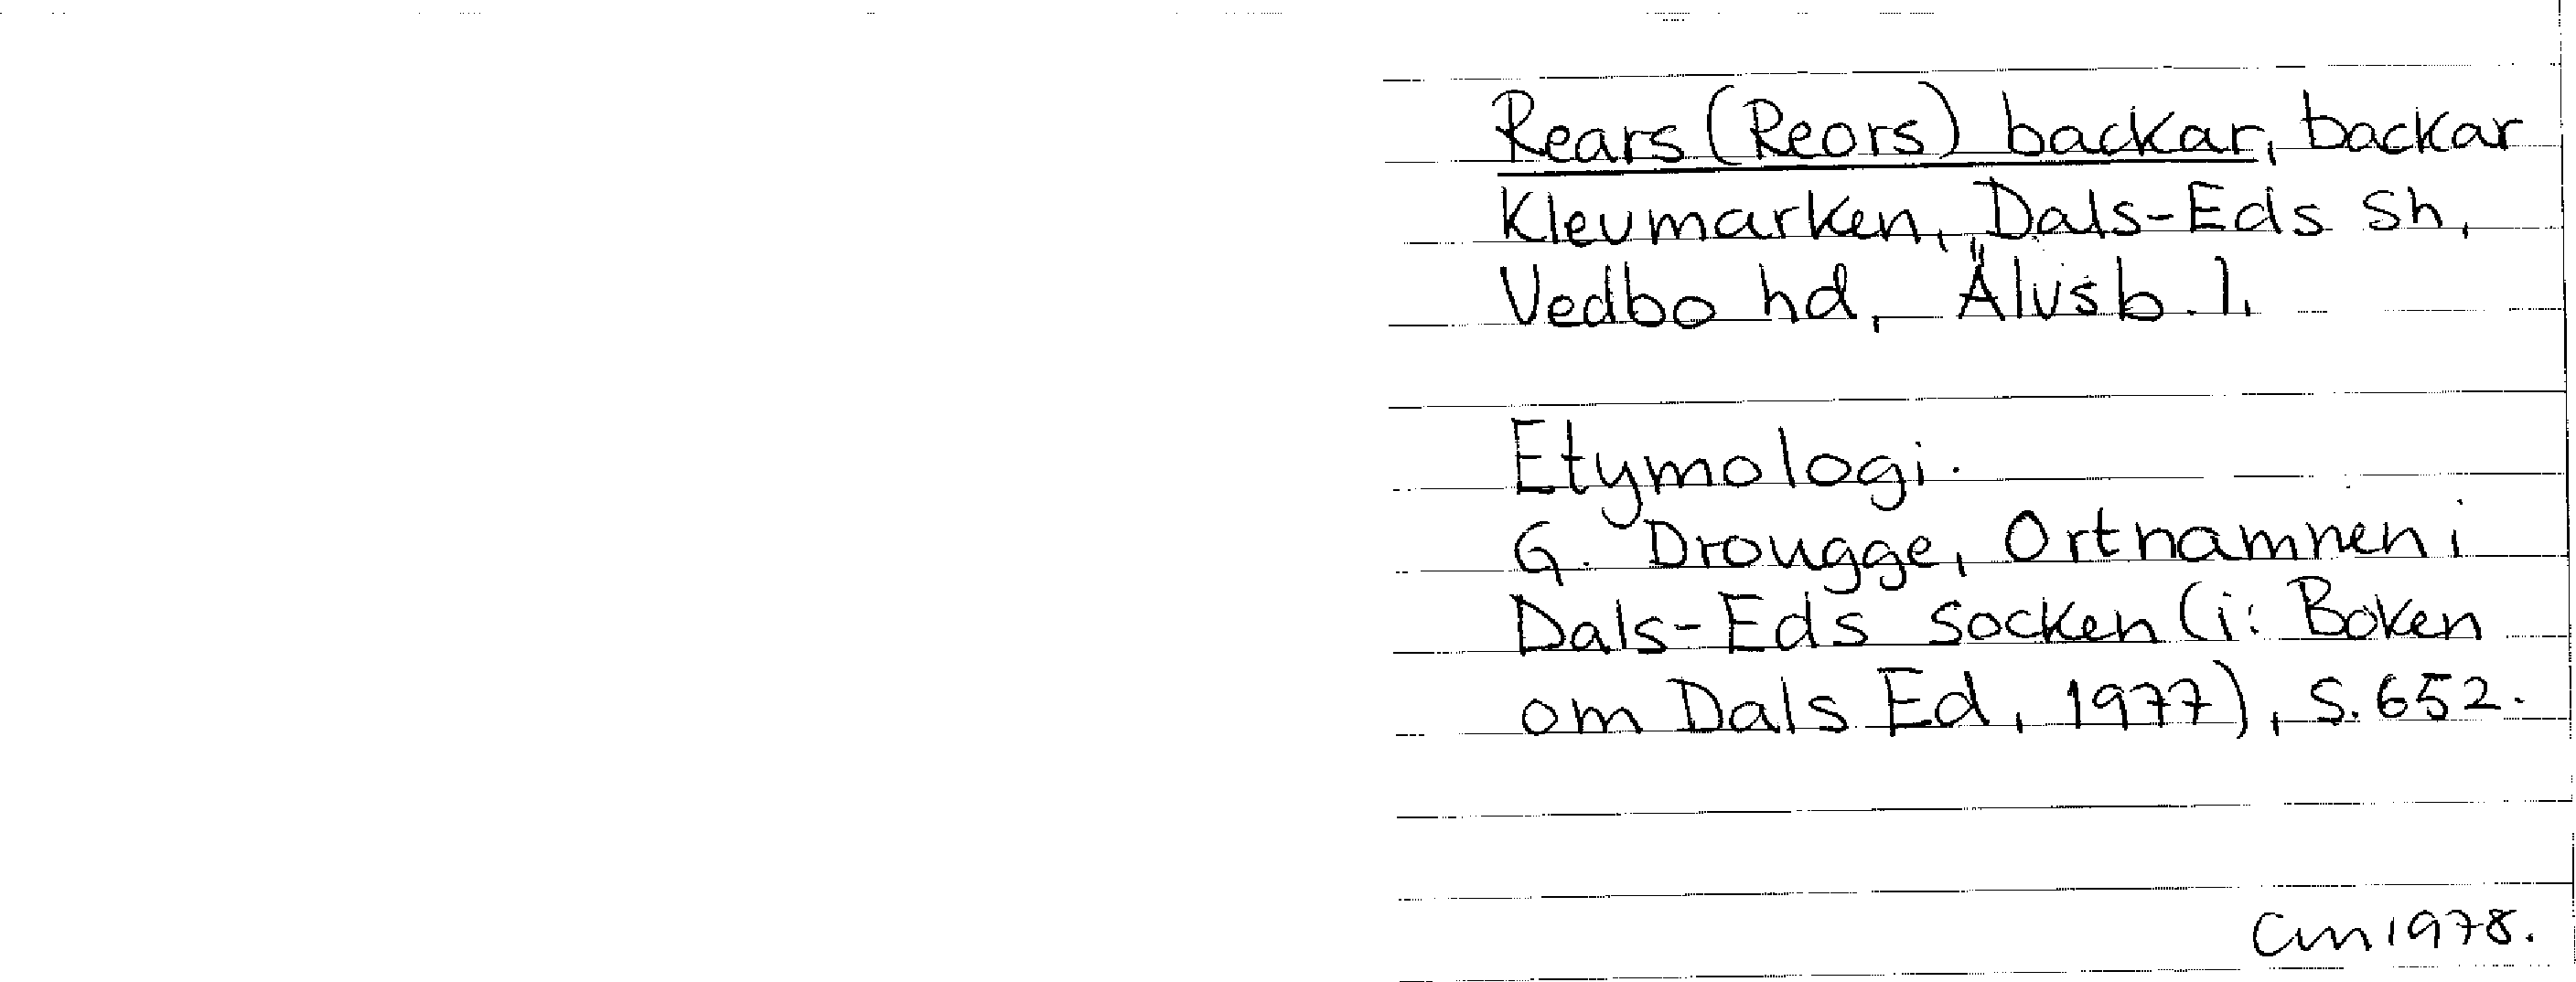 Rears (Reors) backar, backar
Klevmarken, Dals-Eds sn,
Vedbo hd, Älvsb. l.
Etymologi.
G. Drougge, Ortnamnen i
Dals-Eds socken (i: Boken
om Dals Ed, 1977), s. 652.
Cm 1978.